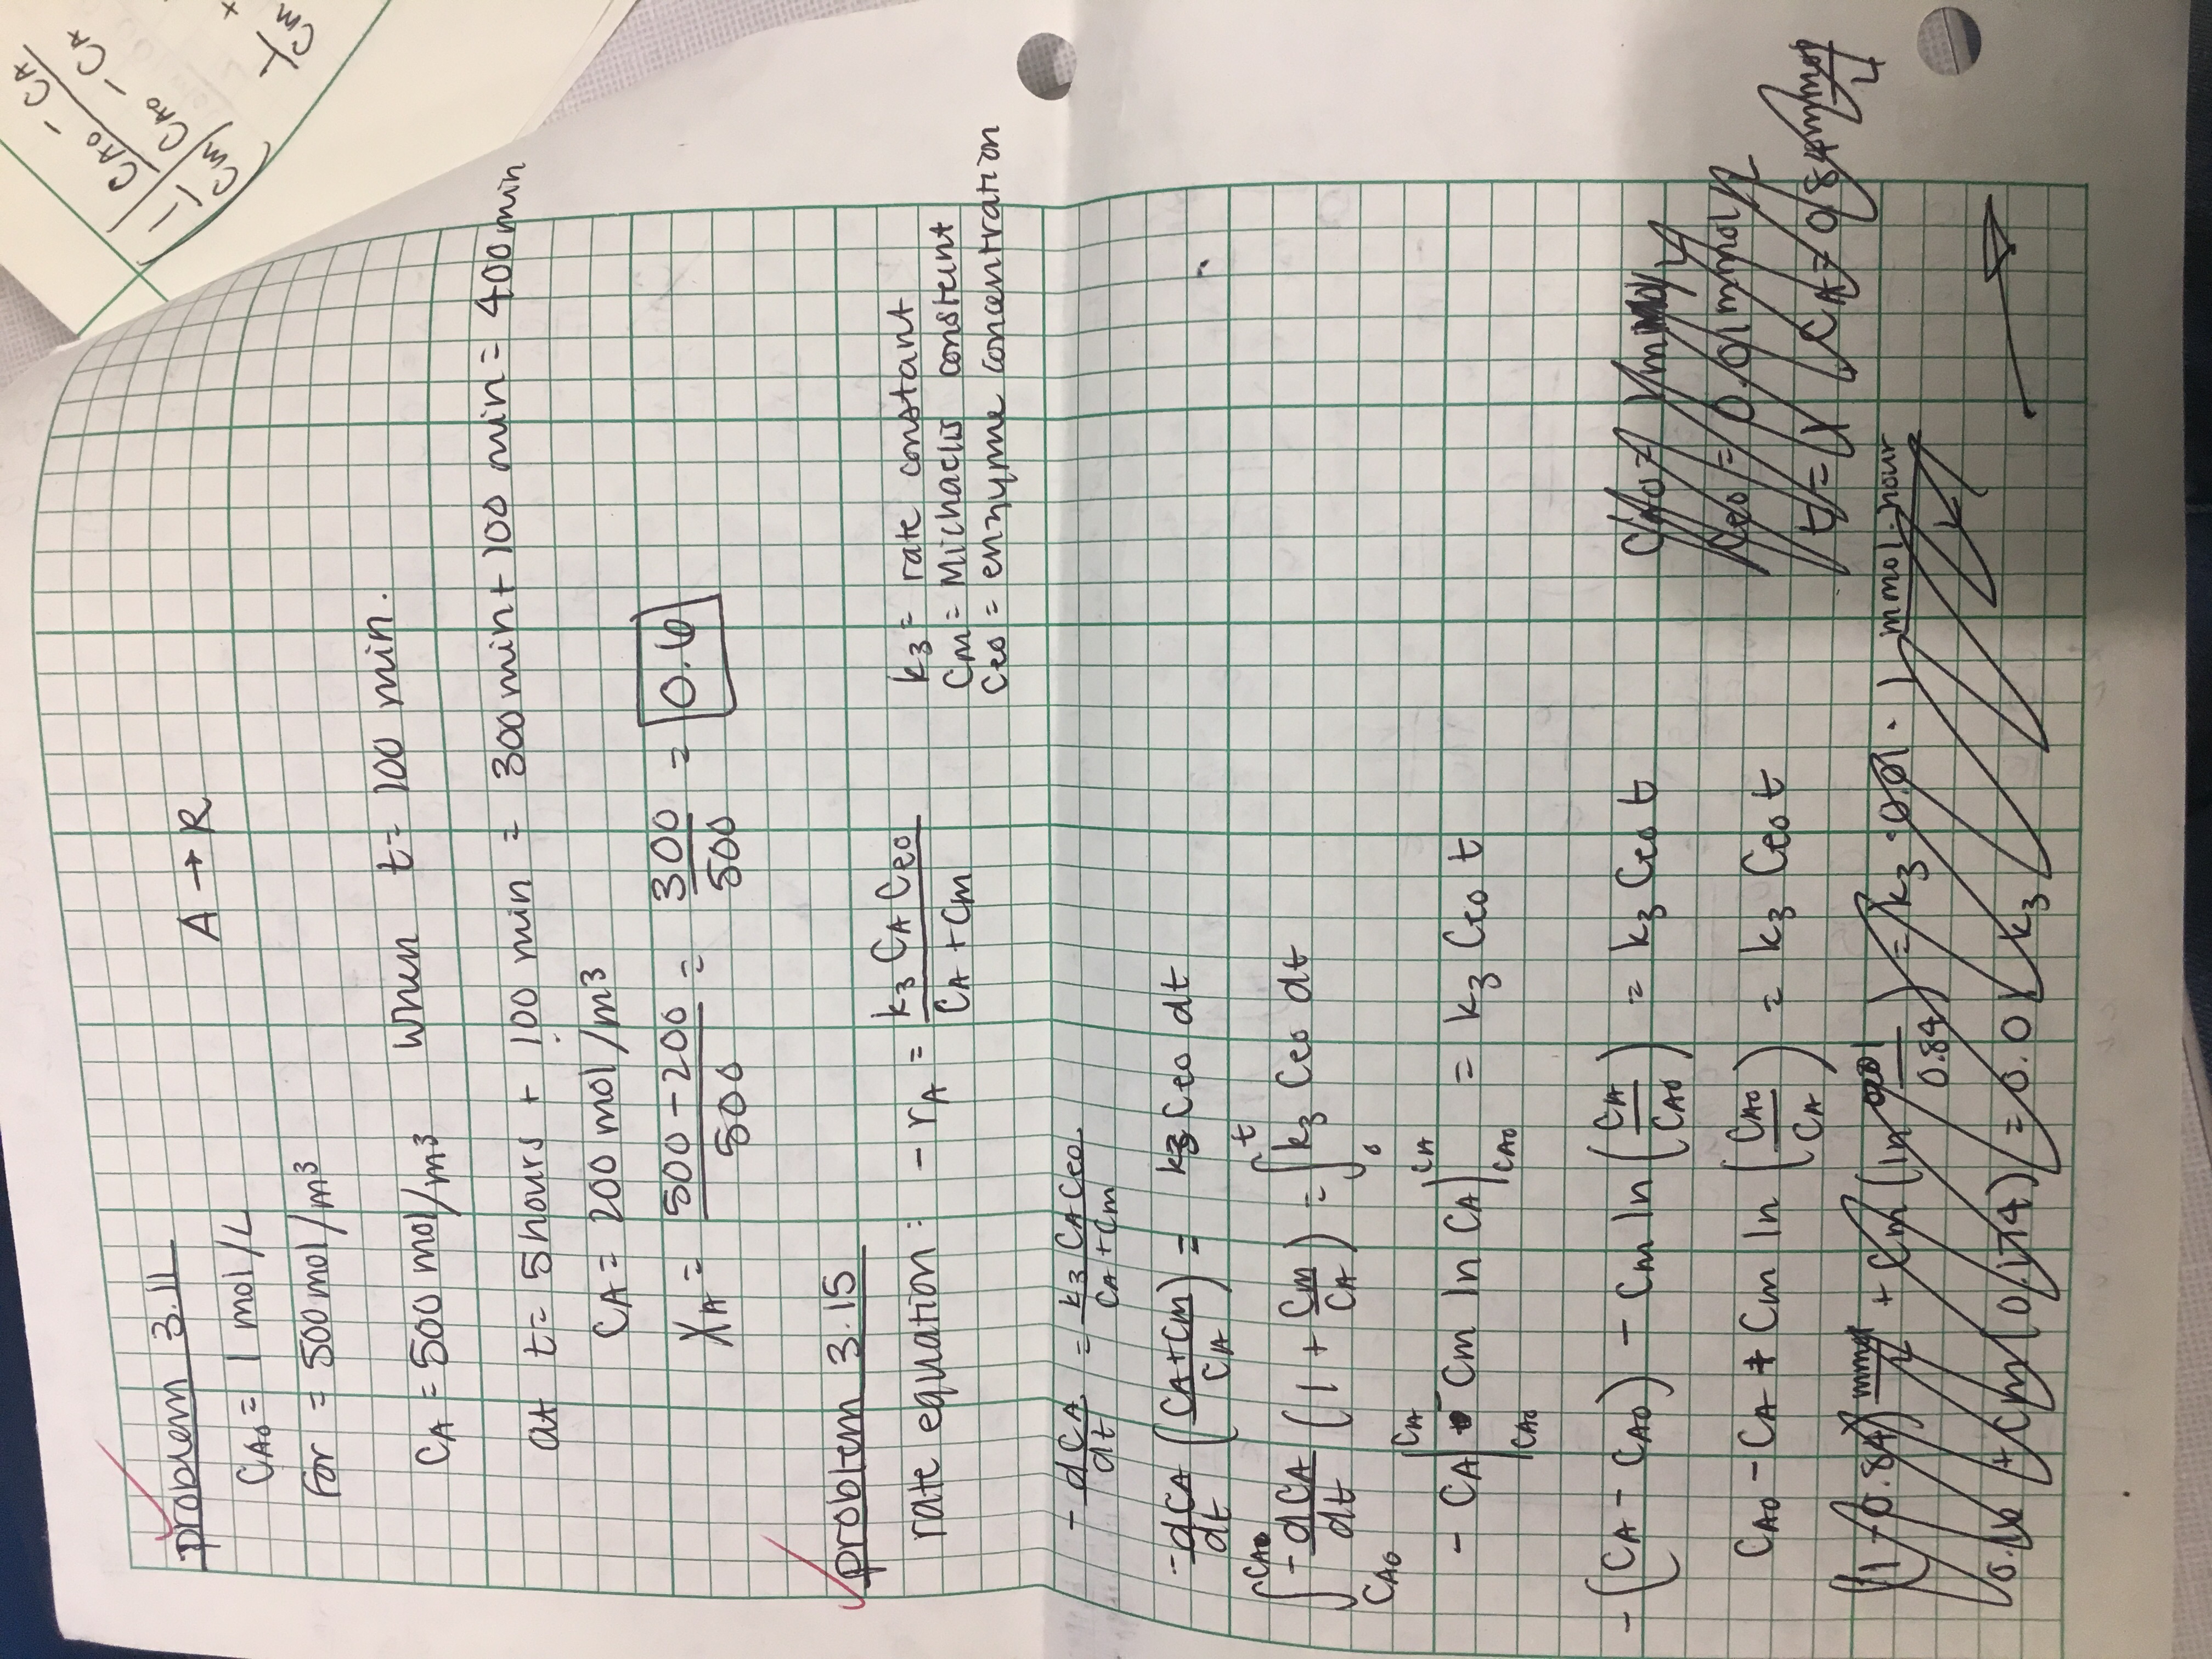 problem 3.11
A → R
CA0 = 1 mol/L
for = 500 mol/m³
CA = 500 mol/m³ when t = 100 min.
at t = 5 hours + 100 min = 300 min + 100 min = 400 min
CA = 200 mol/m³
XA = (500 - 200)/500 = 300/500 = 0.6
problem 3.15
rate equation: - rA = k3 CA Ceo/(CA + Cm)
k3 = rate constant
Cm = Michaelis constant
Ceo = enzyme concentration
- dCA/dt = k3 CA Ceo/(CA + Cm)
- dCA/dt ((CA + Cm)/CA) = k3 Ceo dt
∫CA0 CA0 - dCA/dt (1 + Cm/CA) = ∫0 t k3 Ceo dt
- CA |CA0 CA - Cm ln CA |CA0 CA = k3 Ceo t
- (CA - CA0) - Cm ln (CA/CA0) = k3 Ceo t
CA0 - CA + Cm ln (CA0/CA) = k3 Ceo t
CA0 = 1 mmol/L
Ceo = 0.01 mmol/L
t = 1 CA = 0.84 mmol/L
(1 - 0.84) mmol/L + Cm (ln /0.84) = k3 · 0.01 · 1 mmol·hour/L
0.16 + Cm (0.174) = 0.01 k3
1/Cm CA0 - CA
CA0 - CA
1/Cm +